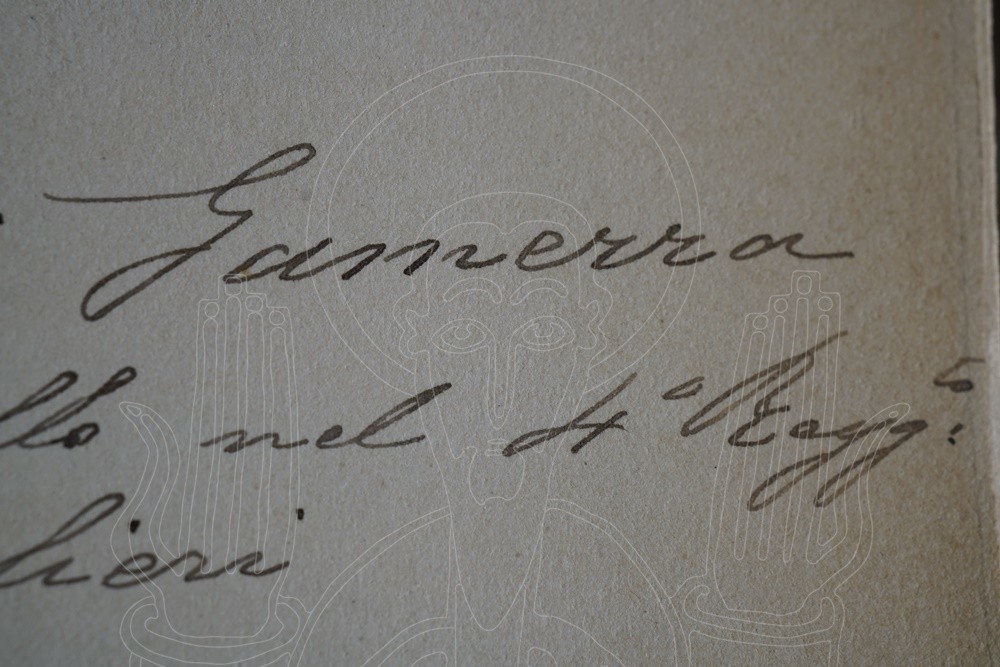 Gamerra
llo nel 4° Regg.to
lieri